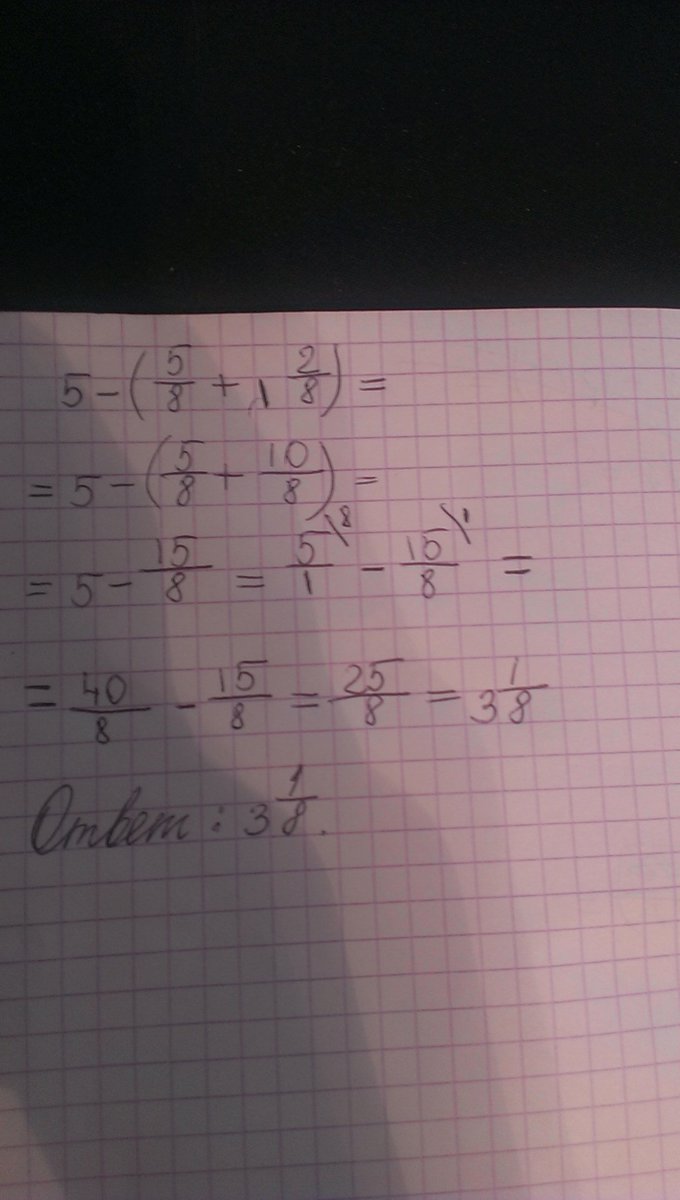 5 - (5/8 + 1 2/8) =
= 5 - (5/8 + 10/8) =
= 5 - 15/8 = 5/1 \8 - 15/8 \1 =
= 40/8 - 15/8 = 25/8 = 3 1/8
Ответ: 3 1/8.